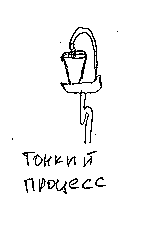 тонкий
процесс